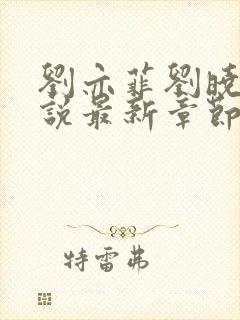 劉亦菲劉曉
說最新章節
特雷弗